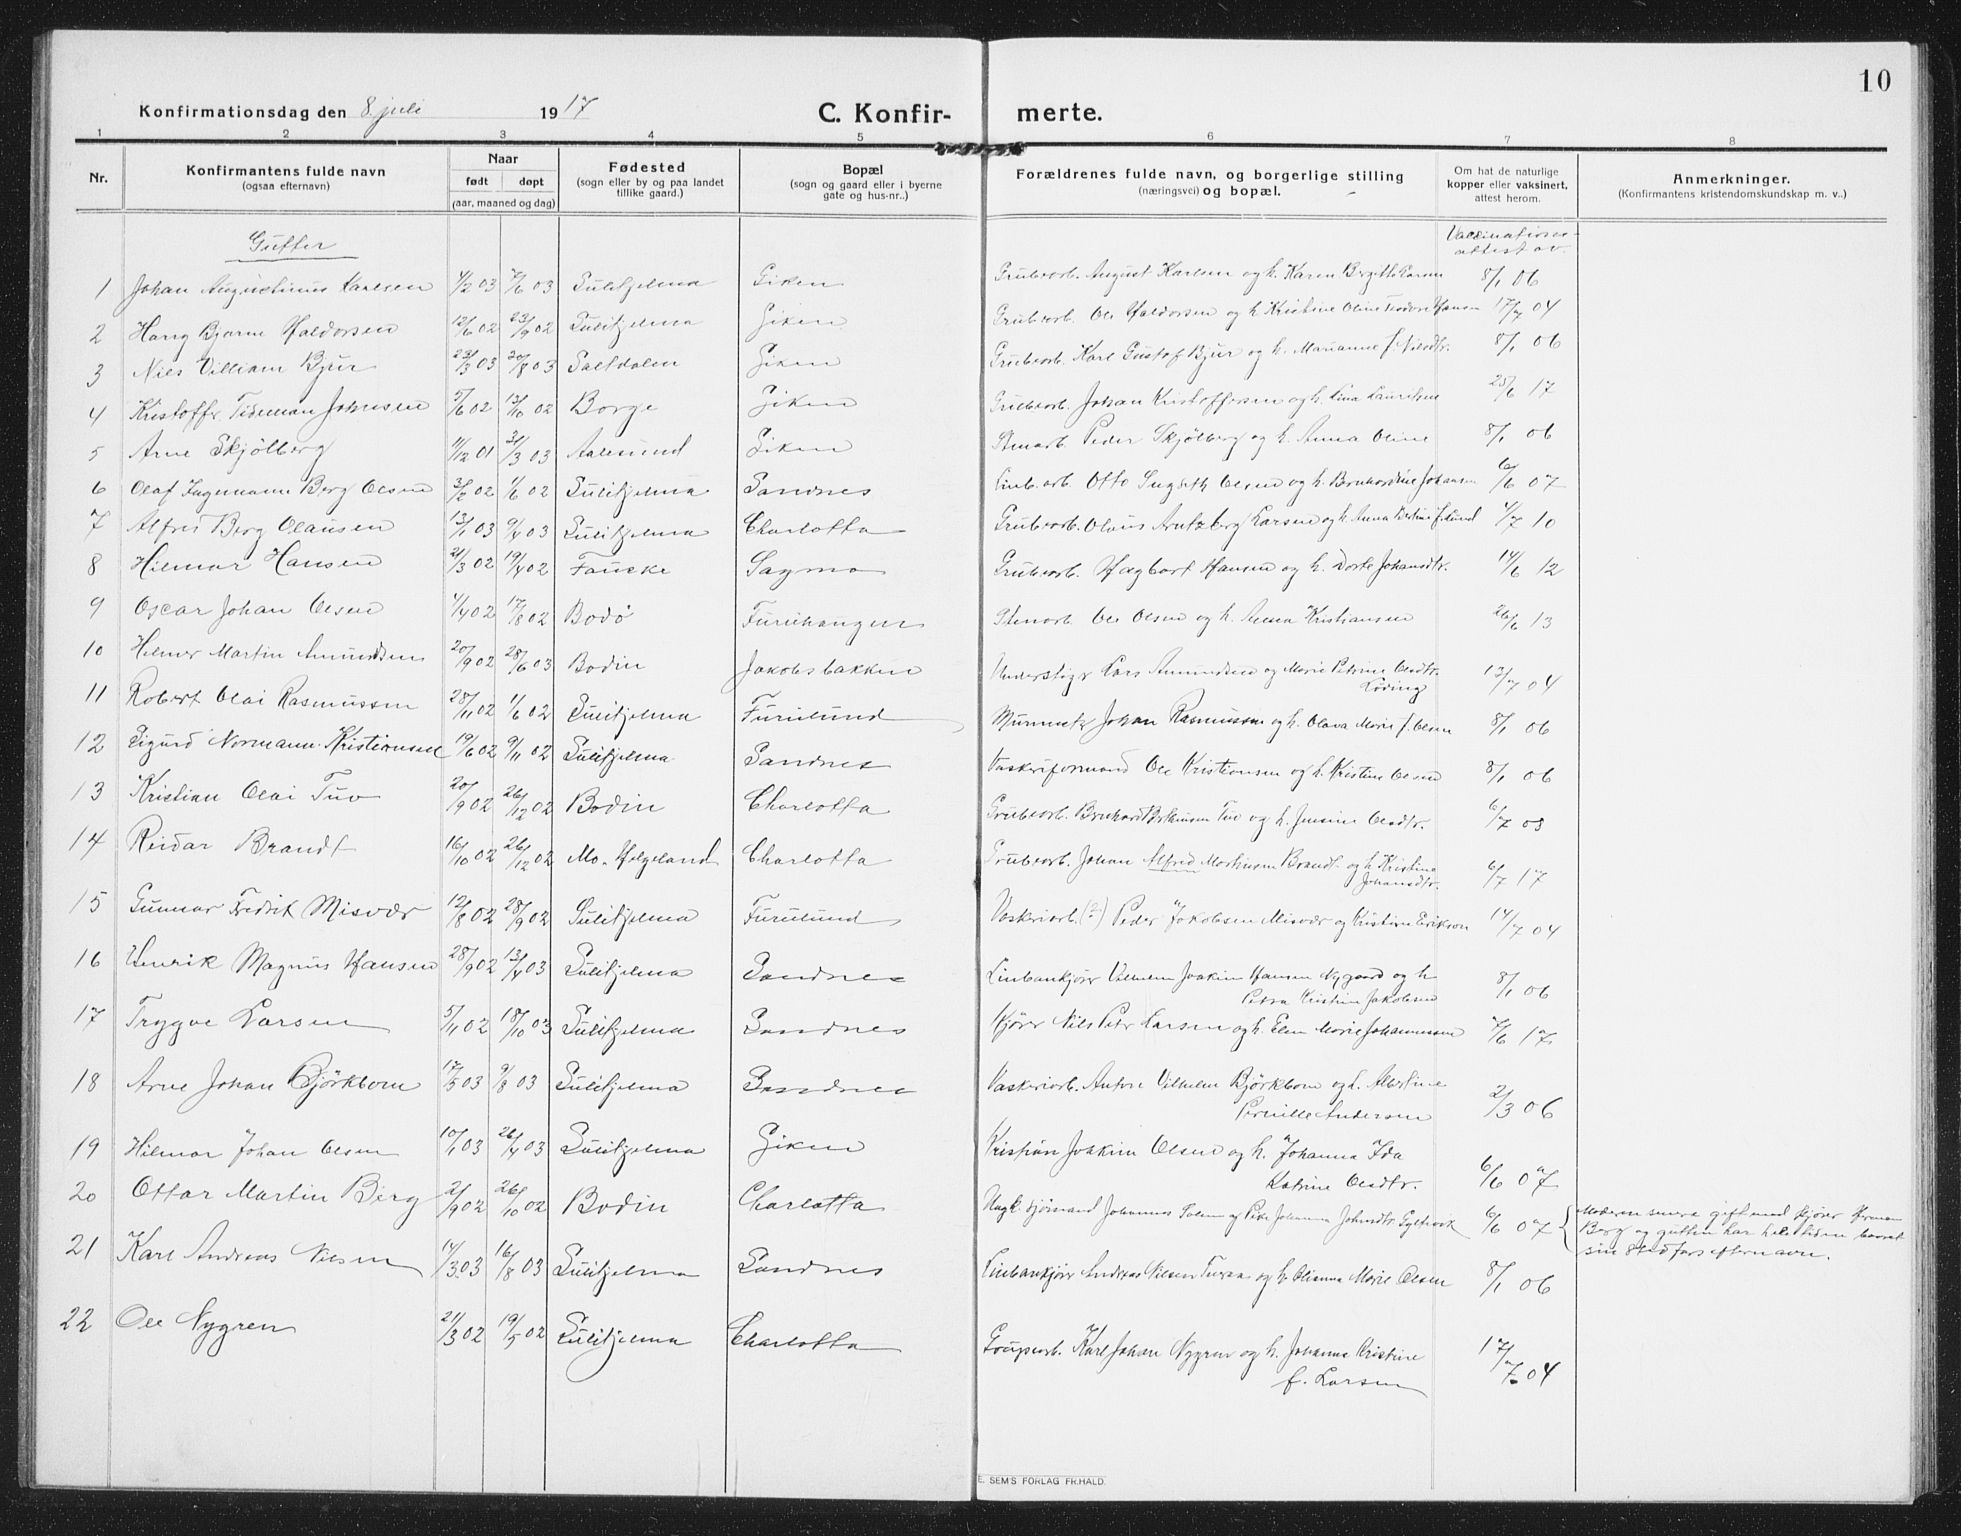 10
Konfirmationsdag den 8. juli 1917 C. Konfir- merte.
1 2 3 4 5 6 7 8
Nr. Konfirmantens fulde navn (ogsaa efternavn) Naar født døpt (aar, maaned og dag) Fødested (sogn eller by og paa landet tillike gaard.) Bopæl (sogn og gaard eller i byerne gate og hus-nr..) Forældrenes fulde navn, og borgerlige stilling (næringsvei) og bopæl. Om hat de naturlige kopper eller vaksinert, attest herom. Anmerkninger. (Konfirmantens kristendomskundskap m. v..)
Gutter Vaccinations-
attest av.
1 Johan Augustinus Karlsen 1/2 03 7/6 03 Sulitjelma Giken Grubearb. August Karlsen og h. Karen Bergith Larsen 8/1 06
2 Hans Bjarne Haldorsen 12/6 02 23/9 02 Sulitjelma Giken Grubearb. Ole Haldorsen og h. Kristine Oline Teodora Hansen 17/7 04
3 Nils Villiam Bjur 23/3 03 20/8 03 Saltdalen Giken Grubearb. Karl Gustof Bjur og h. Marianne f. Nilsdtr. 8/1 06
4 Kristoffer Tideman Johansen 5/6 02 13/10 02 Borge Giken Grubearb. Johan Kristoffersen og h. Lina Lauritsen 25/6 17
5 Arne Skjølberg 11/12 01 31/3 03 Aalesund Giken Stenarb. Peder Skjølberg og h. Anna Oline 8/1 06
6 Olaf Ingemann Berg Olsen 3/2 02 1/6 02 Sulitjelma Sandnes Linb.arb. Otto Olsen og h. Bernhardine Johansen 6/6 07
7 Alfred Berg Olausen 13/1 03 9/4 03 Sulitjelma Charlotta Grubearb. Olaus Arntzberg Larsen og h. Anna Bertine f. Lund 1/7 10
8 Hilmar Hansen 21/3 02 19/4 02 Fauske Sagmo Grubearb. Hagbart Hansen og h. Dorte Johansdtr. 14/6 12
9 Oscar Johan Olsen 1/4 02 17/8 02 Bodø Furuhaugen Stenarb. Ole Olsen og h. Anna Kristiansen 26/6 13
10 Hilmer Martin Amundsen 20/9 02 28/6 03 Bodin Jakobsbakken Understiger Lars Amundsen og Marie Petrine Olsdtr. 13/7 04
Løding
11 Robert Olai Rasmussen 28/11 02 1/6 02 Sulitjelma Furulund Murmester Johan Rasmussen og h. Olava Marie f. Olsen 8/1 06
12 Sigurd Normann Kristiansen 19/6 02 9/11 02 Sulitjelma Sandnes Vaskeriformand Ole Kristiansen og h. Kristine Olsen 8/1 06
13 Kristian Olai Tuv 20/9 02 26/12 02 Bodin Charlotta Grubearb. Bernhard Tuv og h. Jensine Olsdtr. 6/7 03
14 Reidar Brandt 16/10 02 26/12 02 Mo. Helgeland Charlotta Grubearb. Johan Alfred Martinsen Brandt og h. Kristine 6/7 17
Johansdtr.
15 Gunnar Fredrik Misvær 12/8 02 28/9 02 Sulitjelma Furulund Vaskeriarb. (?) Peder Jakobsen Misvær og Kristine Erikson 14/7 04
16 Henrik Magnus Hansen 28/9 02 13/4 03 Sulitjelma Sandnes Linbankjører Vilhelm Joakim Hansen Nygaard og h 8/1 06
Petra Kristine Jakobsen
17 Trygve Larsen 5/11 02 18/10 03 Sulitjelma Sandnes Kjører Nils Peter Larsen og h. Elen Marie Johannessen 7/6 17
18 Arne Johan Björkbom 17/5 03 9/8 03 Sulitjelma Sandnes Vaskeriarb. Anton Vilhelm Björkbom og h. Albertine 2/3 06
Pernille Andersen
19 Hilmar Johan Olsen 10/1 03 26/4 03 Sulitjelma Giken Kristian Joakim Olsen og h. Johanna Ida 6/6 07
Katrine Olsdtr.
20 Ottar Martin Berg 2/9 02 26/10 02 Bodin Charlotta Ungk. Johannes Solem og Pike Johanna Johnsdtr. 6/6 07 Moderen senere gift med kjører Herman
Berg og gutten har hele tiden baaret
sin stedfars efternavn.
21 Karl Andreas Nilsen 14/3 03 16/8 03 Sulitjelma Sandnes Linbankjører Andreas Nilsen og h. Olianna Marie Olsen 8/1 06
22 Ole Nygren 21/3 02 19/5 02 Sulitjelma Charlotta Karl Johan Nygren og h. Johanna Kristine 17/7 04
f. Larsen
E. SEM'S FORLAG FR.HALD.